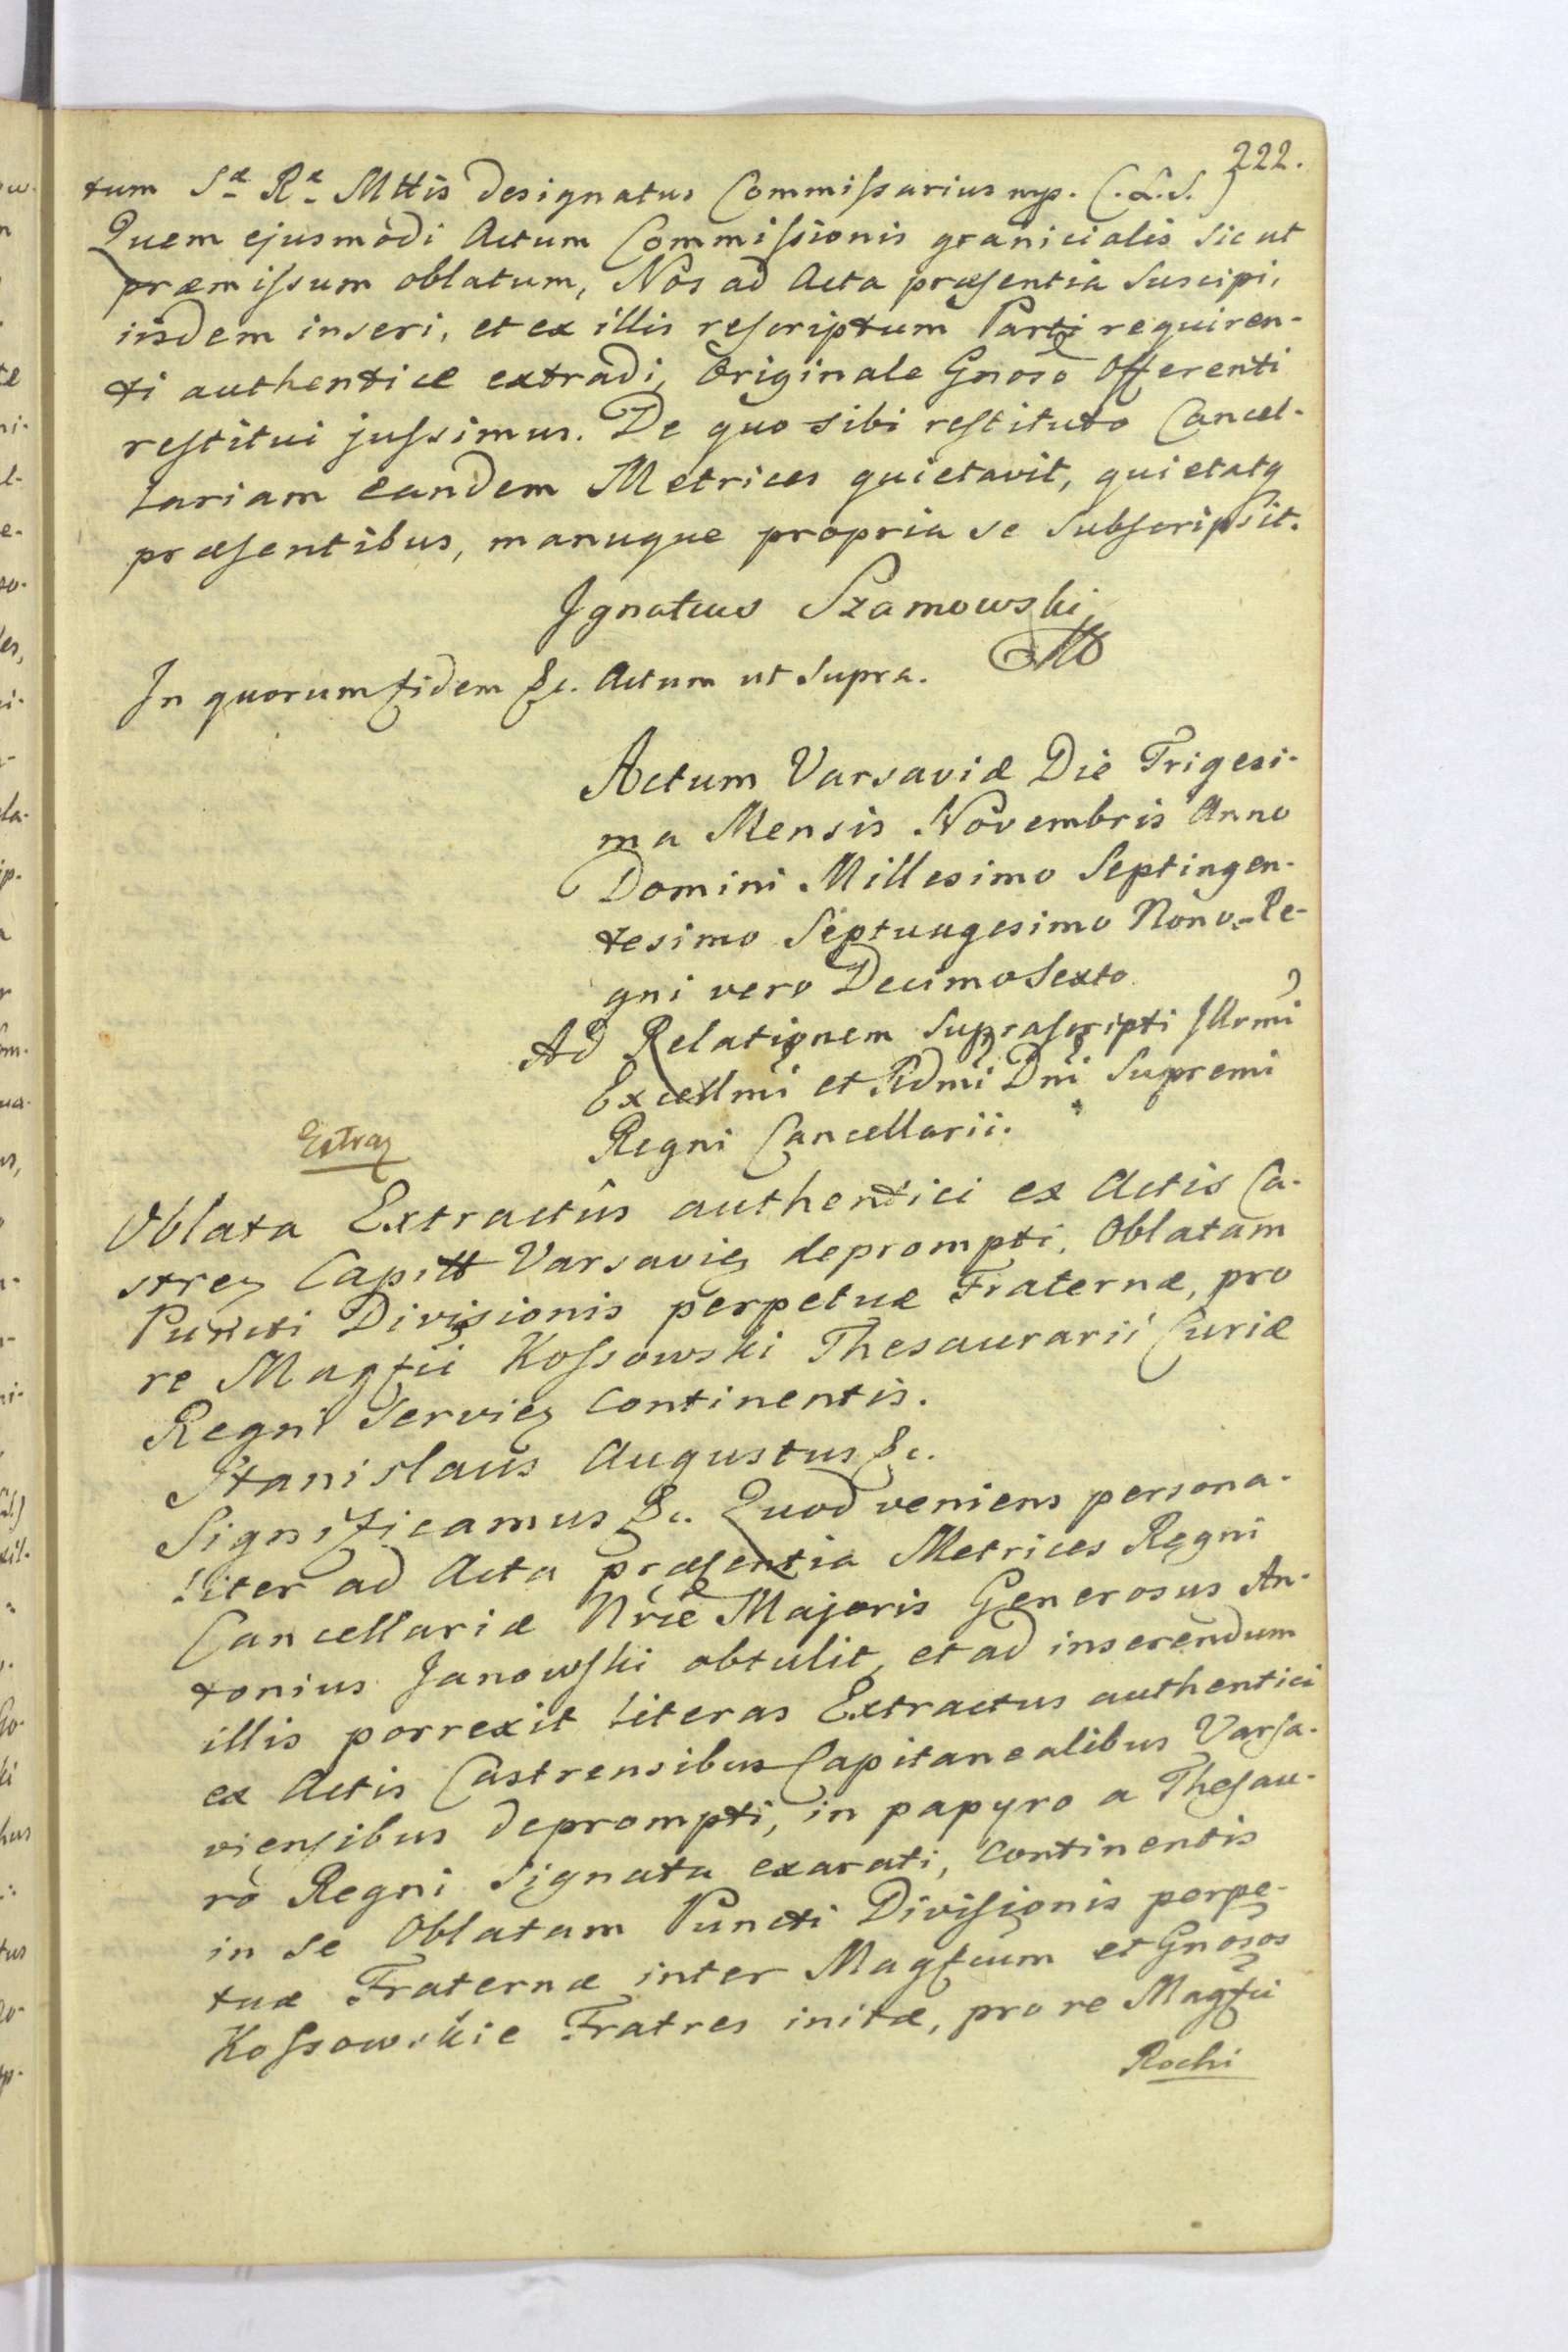 222.
tum Sæ Ræ Mttis designatus Commissarius mp. (.L.S.)
Quem ejusmodi Actum Commissionis granicialis sicut
præmissum oblatum, Nos ad Acta præsentia Suscipi,
iisdem inseri, et ex illis rescriptum Parti requiren-
ti authentice extradi, Originale Gnoso Offerenti
restitui jussimus. De quo sibi restituto Cancel-
lariam eandem Metrices quietavit, quietatq
præsentibus, manuque propria se Subscripsit.
Ignatius Szamowski
mp
In quorum fidem &c. Actum ut Supra.
Actum Varsaviæ Die Trigesi-
ma Mensis Novembris Anno
Domini Millesimo Septingen-
tesimo Septuagesimo Nono. Re-
gni vero Decimo Sexto.
Ad Relationem Suprascripti Illrmi
Excellmi et Rdmi Dni Supremi
Regni Cancellarii.
Extraz
Oblata Extractûs authentici ex Actis Ca-
strez Capitt Varsaviez deprompti, Oblatam
Puncti Divisionis perpetuæ Fraternæ, pro
re Magfici Kossowski Thesaurarii Curiæ
Regni Serviez Continentis.
Stanislaus Augustus &c.
Significamus &c. Quod veniens persona-
liter ad Acta præsentia Metrices Regni
Cancellariæ Nræ Majoris Generosus An-
tonius Janowski obtulit, et ad inserendum
illis porrexit literas Extractus authentici
ex Actis Castrensibus Capitanealibus Varsa-
viensibus deprompti, in papyro a Thesau-
ro Regni Signata exarati, Continentis
in se Oblatam Puncti Divisionis perpe-
tuæ Fraternæ inter Magficum et Gnosos
Kossowskie Fratres initæ, pro re Magfici
Rochi